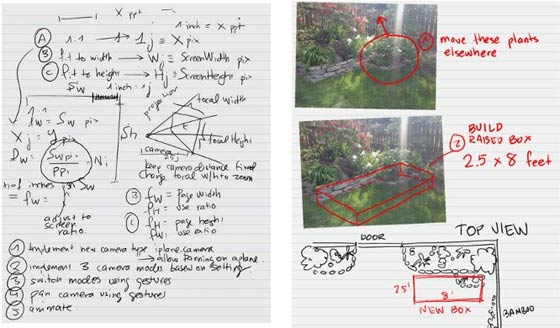 X ppt
1 inch = X ppt
A 1:1 → 1j = X pix
B fit to width → Wj = ScreenWidth pix
C fit to height → Hj = ScreenHeight pix
1 inch = 1j
focal width
Sh
focal Height
camera
keep camera distance fixed
change focal w/h to zoom
1:1
fw = Sw pix
Sw pix
PPI
Sw
fw =
adjust to
screen
ratio.
B fw = Page width
fH = use ratio
C fH = page height
fw = use ratio
1 implement new camera type iplane.camera
→ allow panning on a plane
2 implement 3 camera modes based on setting
3 switch modes using gestures
4 pan camera using gestures
5 animate.
1 move these plants
elsewhere
2 BUILD
RAISED BOX
2.5 x 8 feet
TOP VIEW
DOOR
25'
8'
NEW BOX
BAMBOO